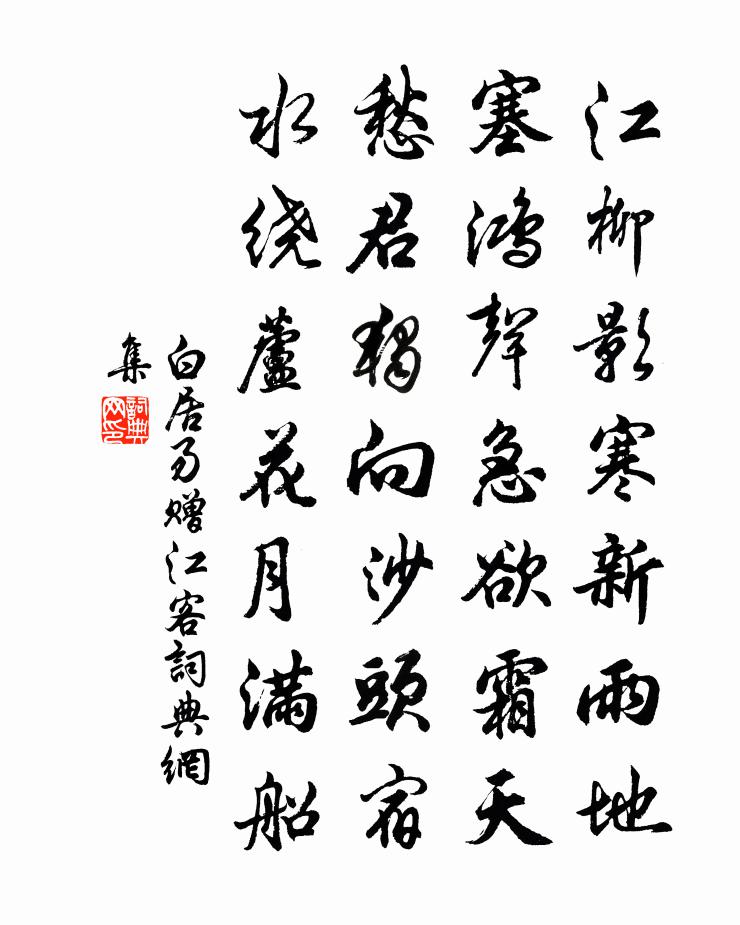 江柳影寒新雨地
塞鴻聲急欲霜天
愁君獨向沙頭宿
水绕蘆花月满船
白居易赠江客詞典網
集
詞典
网印